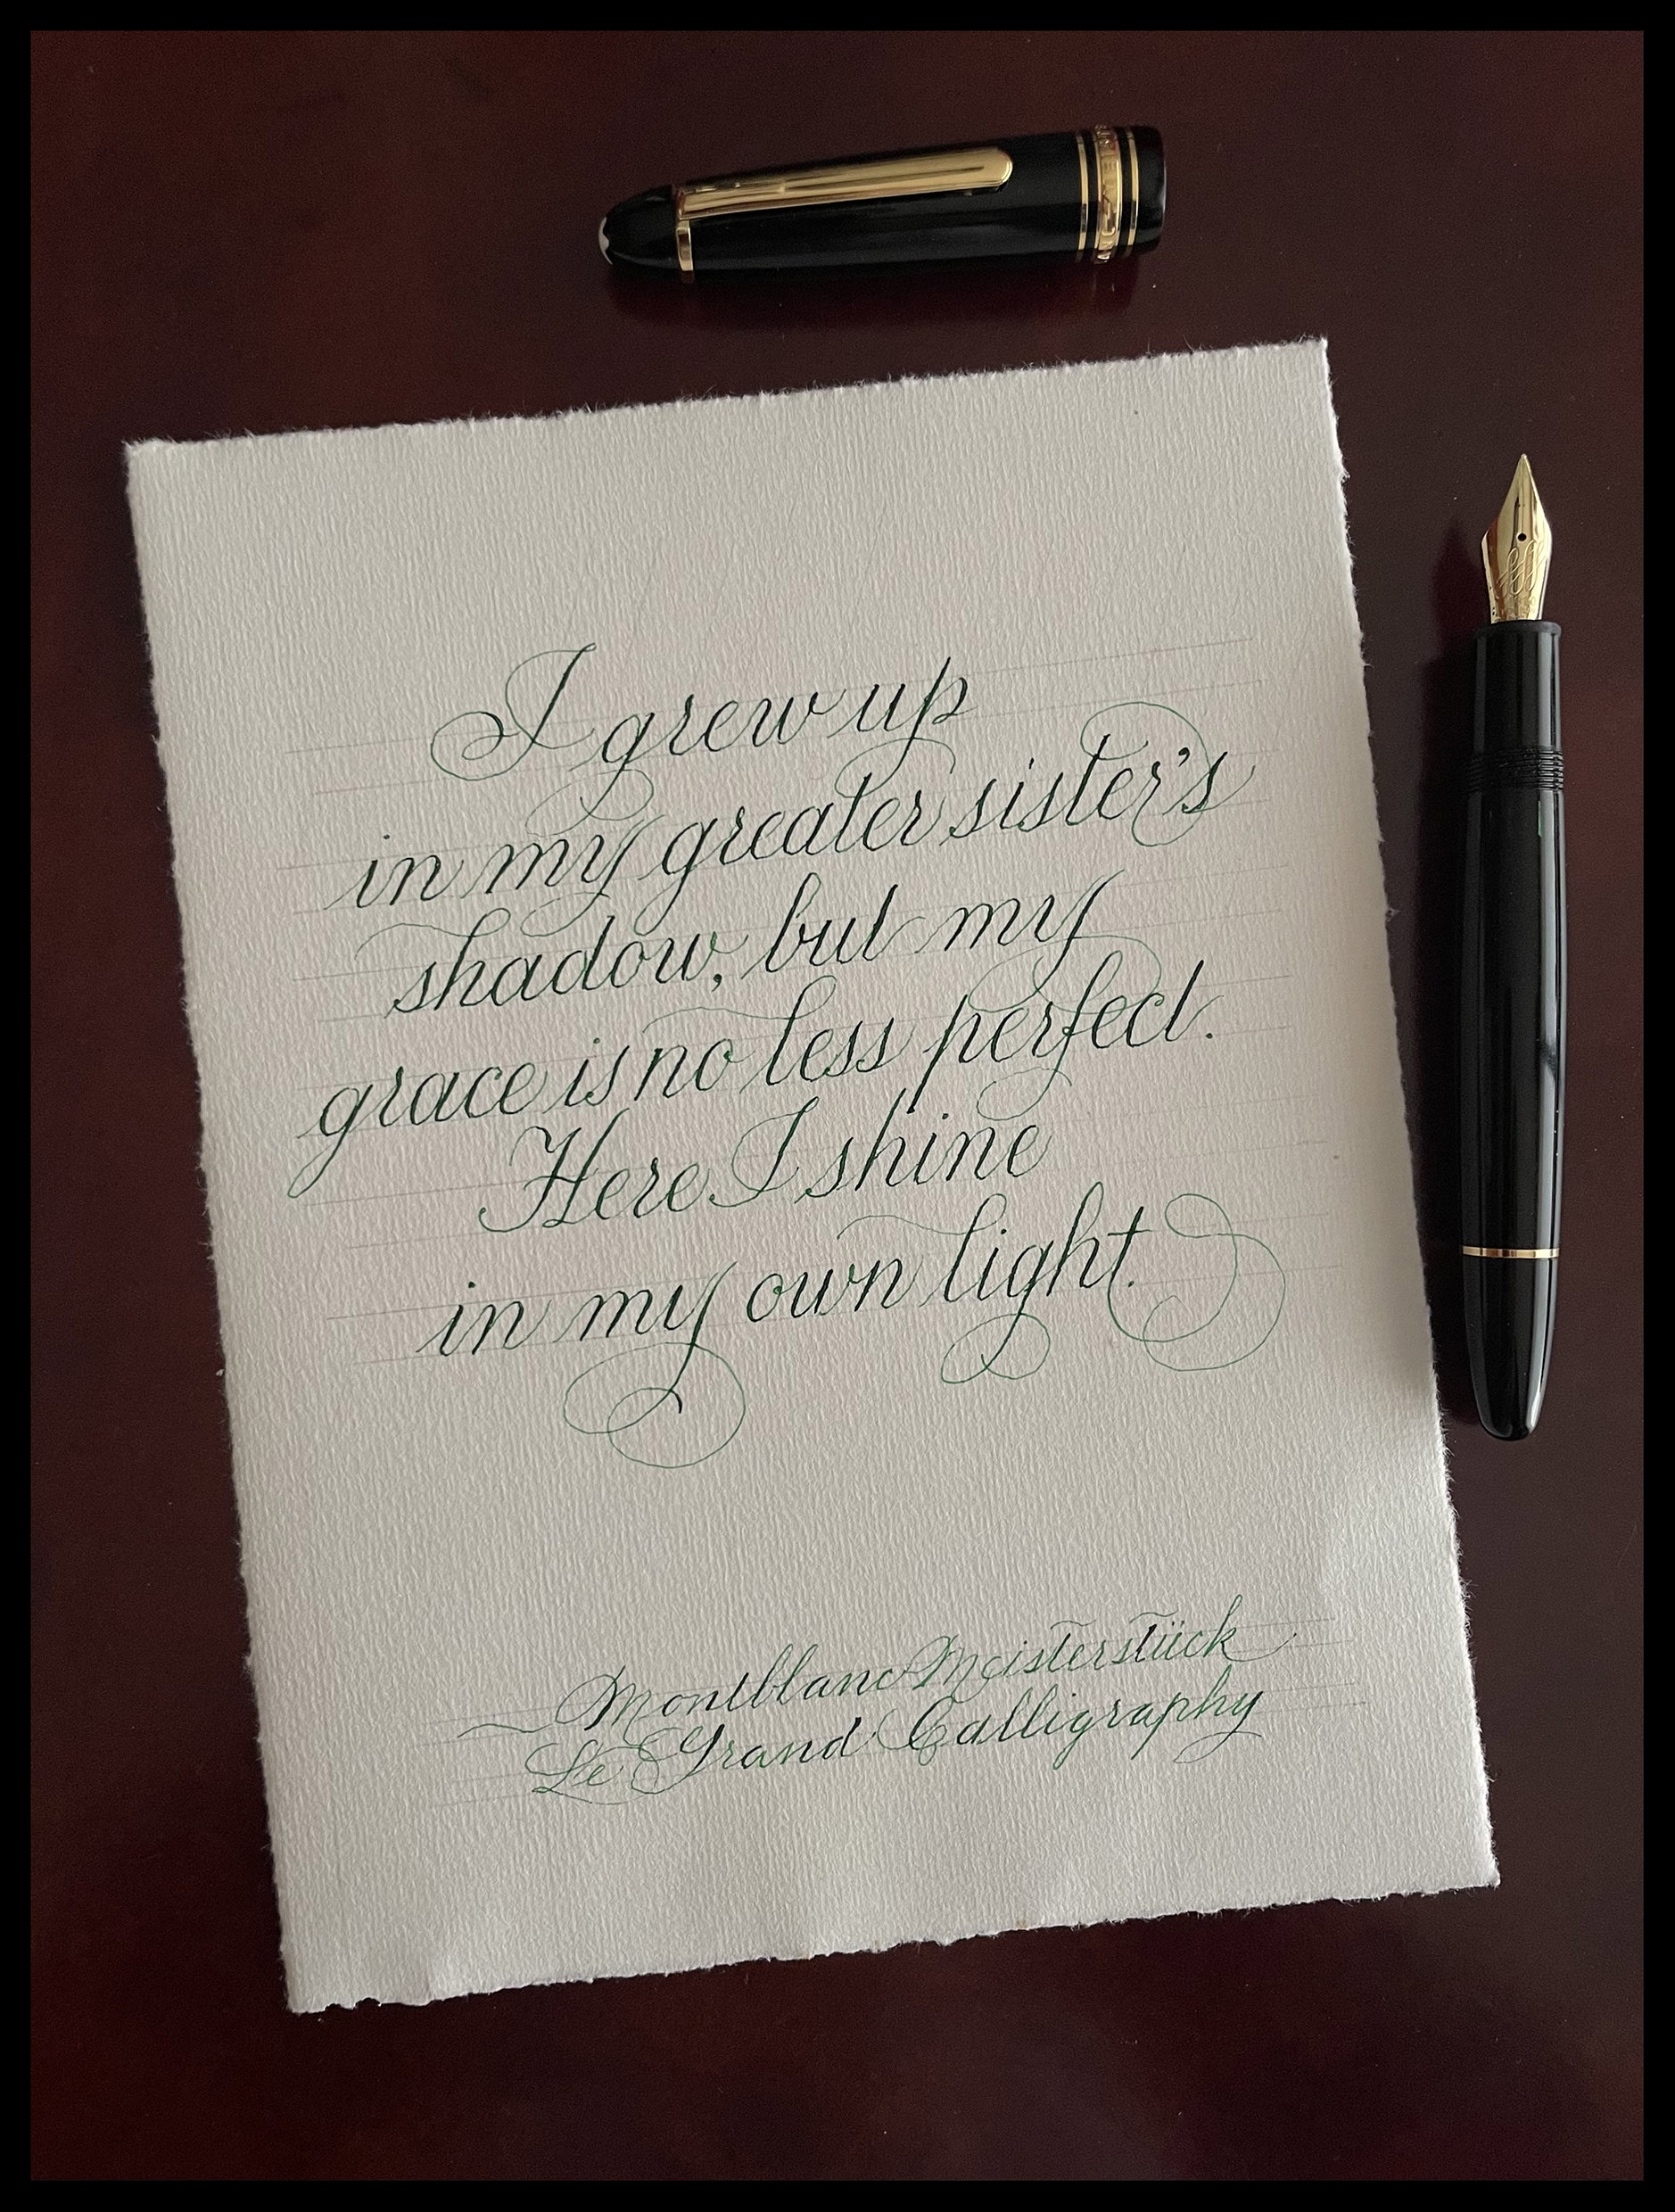 I grew up
in my greater sister's
shadow, but my
grace is no less perfect.
Here I shine
in my own light.
Montblanc Meisterstück
Le Grand Calligraphy